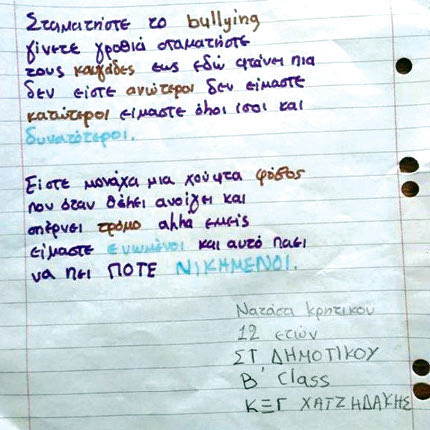 Σταματήστε το bullying
γίνετε γροθιά σταματήστε
τους καυγάδες εως εδώ φτάνει πια
δεν είστε ανώτεροι δεν είμαστε
κατώτεροι είμαστε όλοι ίσοι και
δυνατότεροι.
Είστε μονάχα μια χούφτα φόβος
που όταν θέλει ανοίγει και
σπέρνει τρόμο αλλα εμείς
είμαστε ενωμένοι και αυτό πάει
να πει ΠΟΤΕ ΝΙΚΗΜΕΝΟΙ.
Νατάσα Κρητικου
12 ετών
ΣΤ ΔΗΜΟΤΙΚΟΥ
Β' Class
ΚΞΓ ΧΑΤΖΗΔΑΚΗΣ